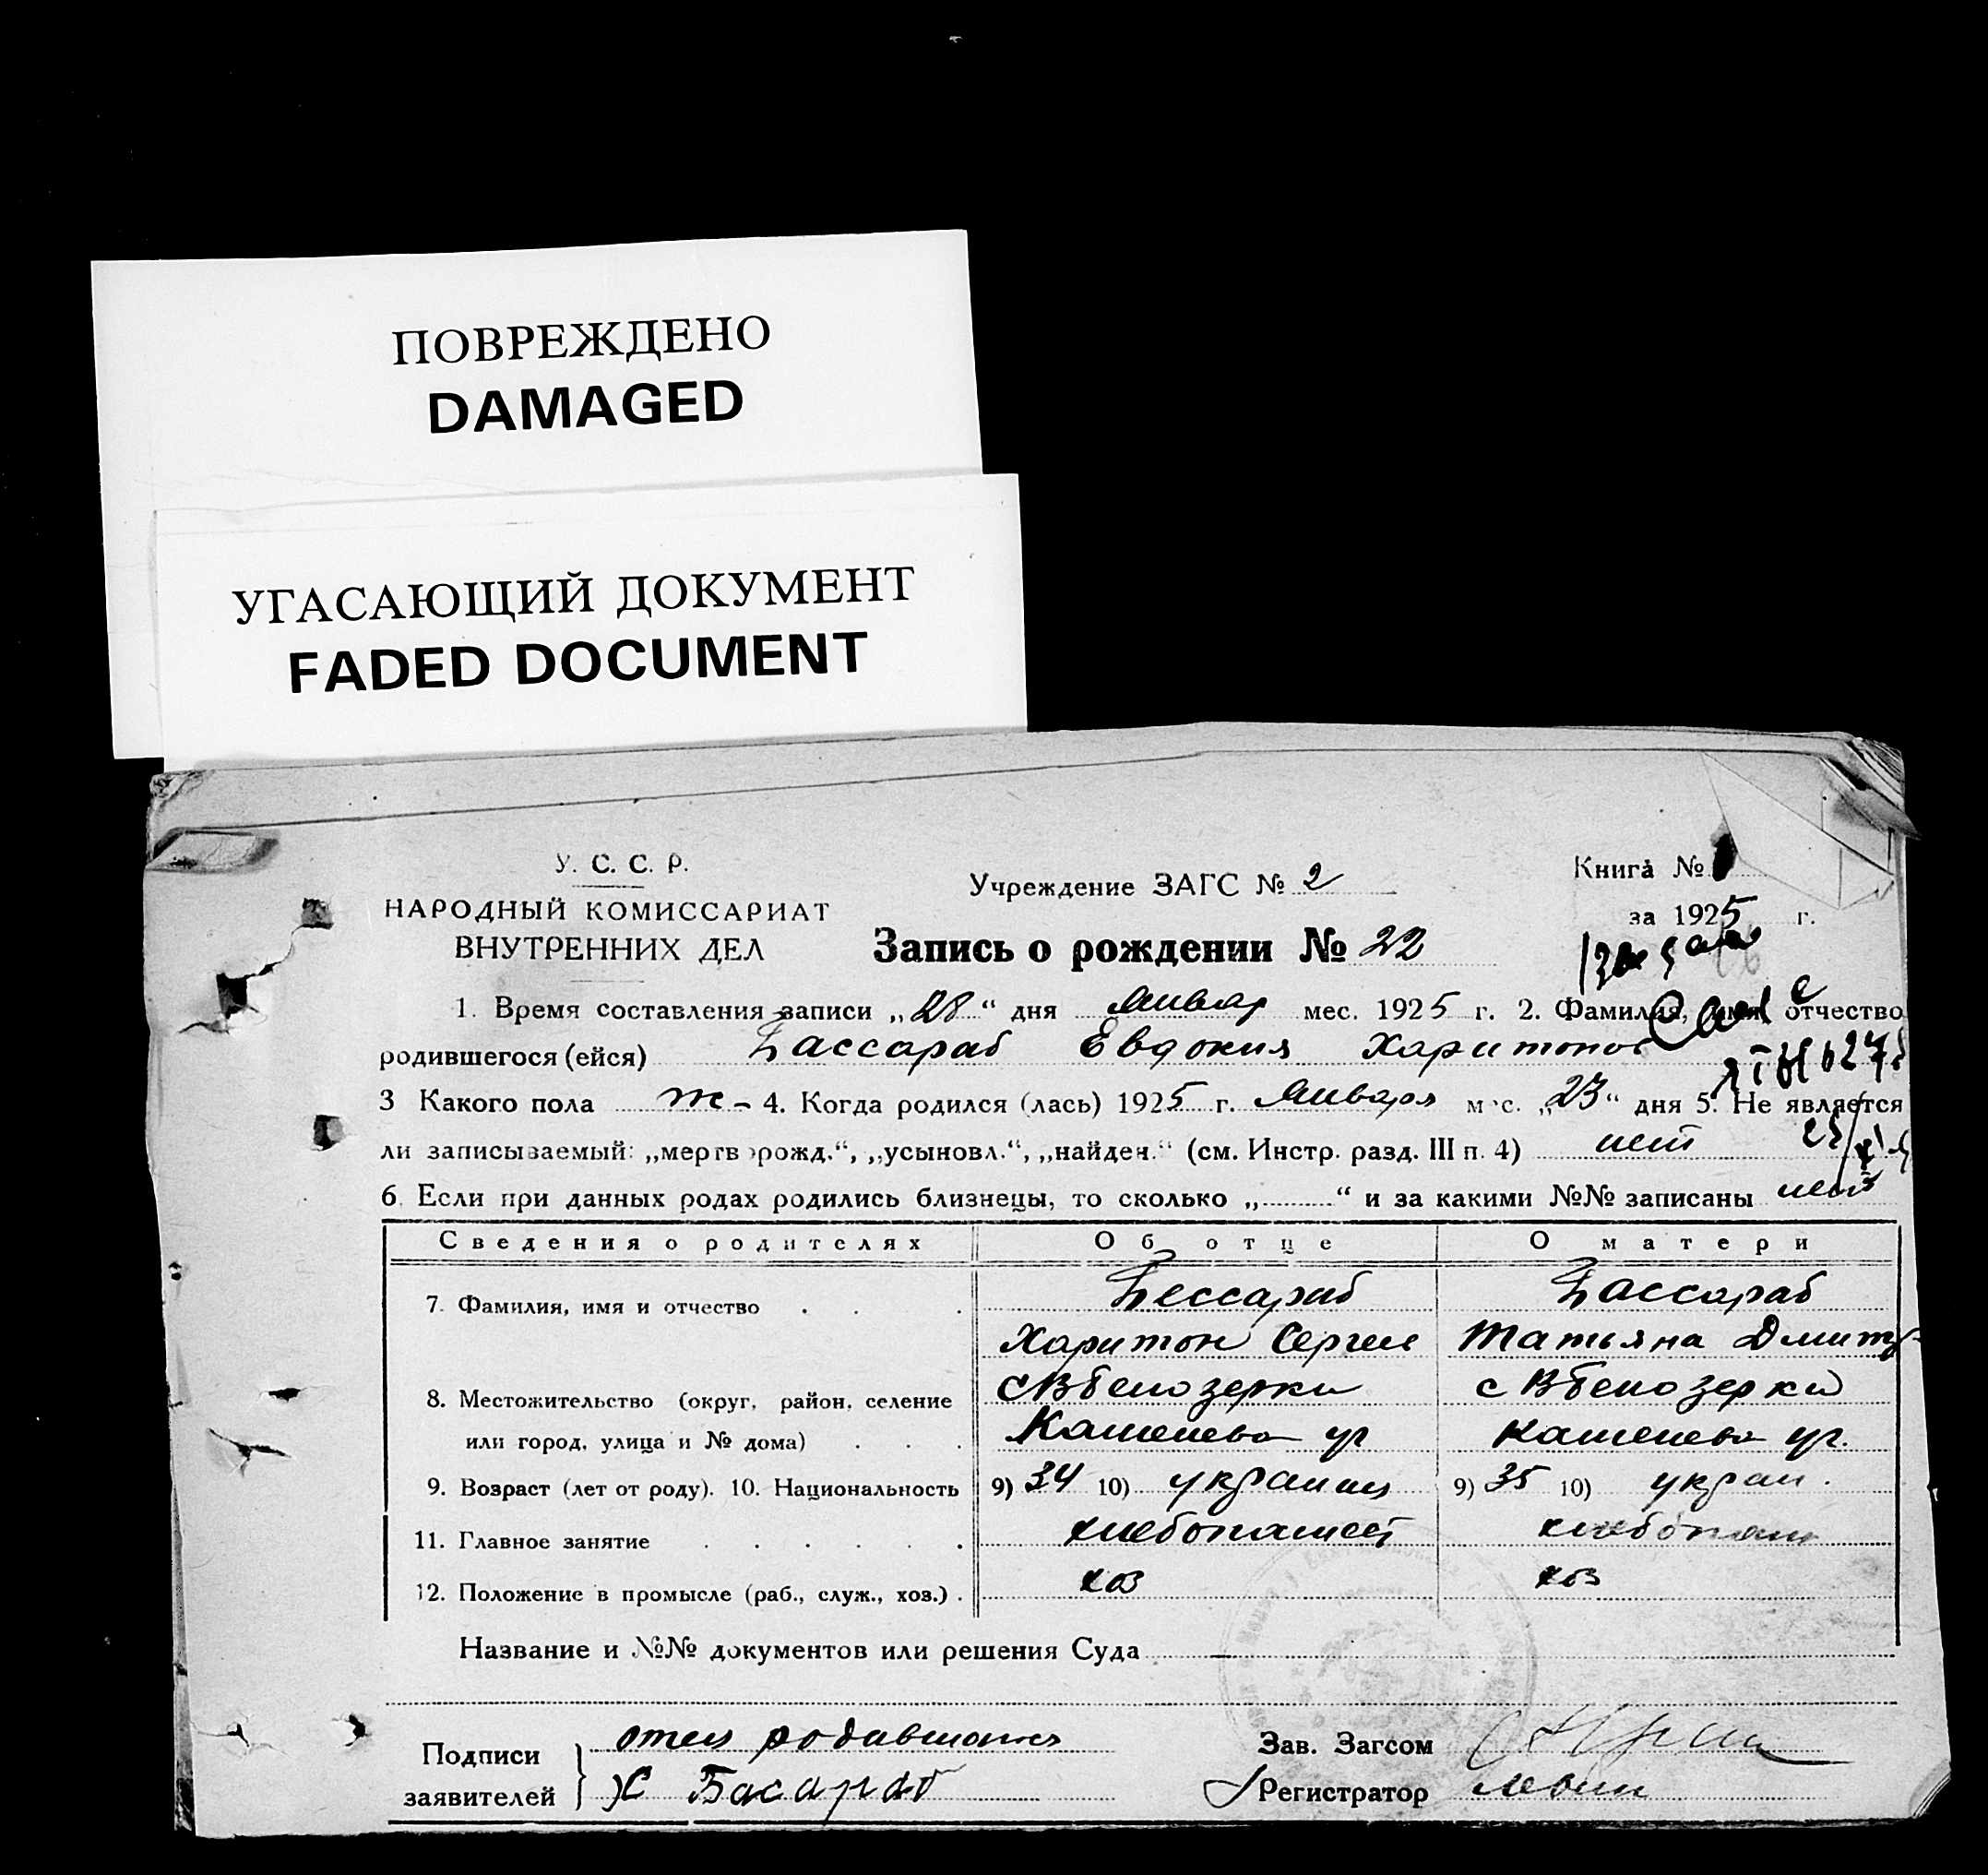 ПОВРЕЖДЕНО
DAMAGED
УГАСАЮЩИЙ ДОКУМЕНТ
FADED DOCUMENT
У. С. С. Р.
НАРОДНЫЙ КОМИССАРИАТ
ВНУТРЕННИХ ДЕЛ
Учреждение ЗАГС № 2
Книга №
за 1925 г.
Запись о рождении № 22
1. Время составления записи „28“ дня январ мес. 1925 г. 2. Фамилия, имя отчество
родившегося (ейся) Бассараб Евдокия Харитонов
3 Какого пола ж - 4. Когда родился (лась) 1925 г. января мес. „23“ дня 5. Не является
ли записываемый: „мертворожд.“, „усыновл.“, „найден.“ (см. Инстр. разд. III п. 4) нет
6. Если при данных родах родились близнецы, то сколько „ “ и за какими №№ записаны нет
Сведения о родителях Об отце О матери
7. Фамилия, имя и отчество Бессараб Бассараб
Харитон Сергее Татьяна Дмитр
8. Местожительство (округ, район, селение с В белозерки с В белозерки
или город, улица и № дома) Каменева ул Каменева ул.
9. Возраст (лет от роду). 10. Национальность 9) 34 10) украинц 9) 35 10) украи.
11. Главное занятие хлебопашест хлебопаш
12. Положение в промысле (раб., служ., хоз.) хоз хоз
Название и №№ документов или решения Суда —
Подписи заявителей } отец родившейся
Х Басараб
Зав. Загсом
Регистратор Левин